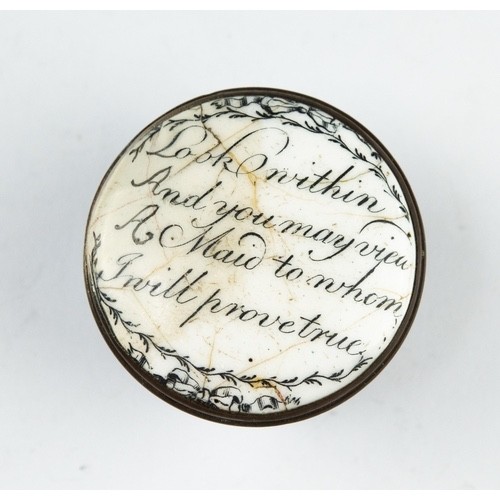 Look within
And you may view
A Maid to whom
I will prove true